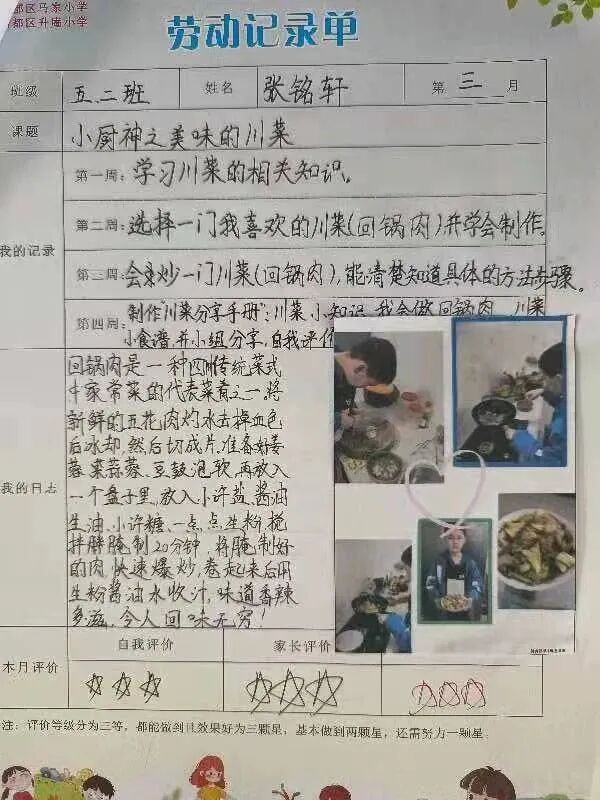 都区马家小学
都区升庵小学
劳动记录单
班级 五.二班 姓名 张铭轩 第 三 月
课题 小厨神之美味的川菜
我的记录
第一周: 学习川菜的相关知识。
第二周: 选择一门我喜欢的川菜(回锅肉)并学会制作。
第三周: 会炒一门川菜(回锅肉),能清楚知道具体的方法步骤。
第四周: 制作"川菜分享手册":川菜小知识 我会做回锅肉 川菜
小食谱,并小组分享,自我评价
我的日志
回锅肉是一种四川传统菜式
中家常菜的代表菜肴之一,将
新鲜的五花肉灼水去掉血色
后冰却,然后切成片,准备好姜
蒜蓉、豆鼓泡软,再放入
一个盘子里,放入小许盐,酱油
生油,小许糖,一点点生粉,搅
拌腌制20分钟,将腌制好
的肉,快速爆炒,卷起来后用
生粉酱油水收汁,味道香辣
多滋,令人回味无穷!
本月评价
自我评价 家长评价
注: 评价等级分为三等,都能做到且效果好为三颗星,基本做到两颗星,还需努力一颗星